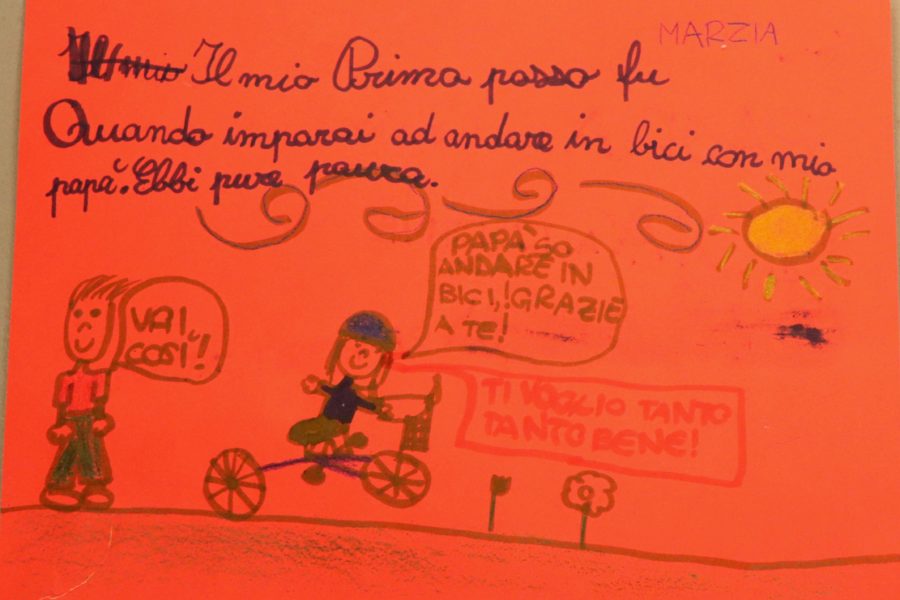 MARZIA
Il mio Prima passo fu
Quando imparai ad andare in bici con mio
papà. Ebbi pure paura.
PAPÀ SO
ANDARE IN
BICI,!GRAZIE
A TE!
VAI
COSÌ!
TI VOGLIO TANTO
TANTO BENE!